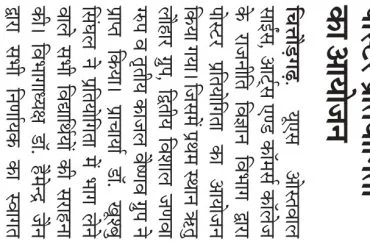 का आयोजन
चित्तौड़गढ़. यूएम ओस्तवाल
साईंस, आर्ट्स एण्ड कॉमर्स कॉलेज
के राजनीति विज्ञान विभाग द्वारा
पोस्टर प्रतियोगिता का आयोजन
किया गया। जिसमें प्रथम स्थान ऋतु
लौहार ग्रुप, द्वितीय विशाल जणवा
ग्रुप व तृतीय काजल वैष्णव ग्रुप ने
प्राप्त किया। प्राचार्या डॉ. खुशबु
सिंघल ने प्रतियोगिता में भाग लेने
वाले सभी विद्यार्थियों की सराहना
की। विभागाध्यक्ष डॉ. हेमेन्द्र जैन
द्वारा सभी निर्णायक का स्वागत